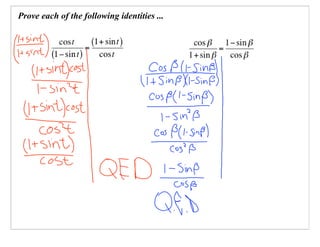 Prove each of the following identities ...
(1+sint)/(1+sint) cos t/(1−sin t) = (1+sin t)/cos t
(1+sint)cost/1-sin²t
(1+sint)cost/cos²t
(1+sint)/cost
QED
cos β/1+sin β = 1−sin β/cos β
Cosβ(1-Sinβ)/(1+Sinβ)(1-Sinβ)
Cosβ(1-Sinβ)/1-Sin²β
Cosβ(1-Sinβ)/Cos²β
1-Sinβ/Cosβ
QED